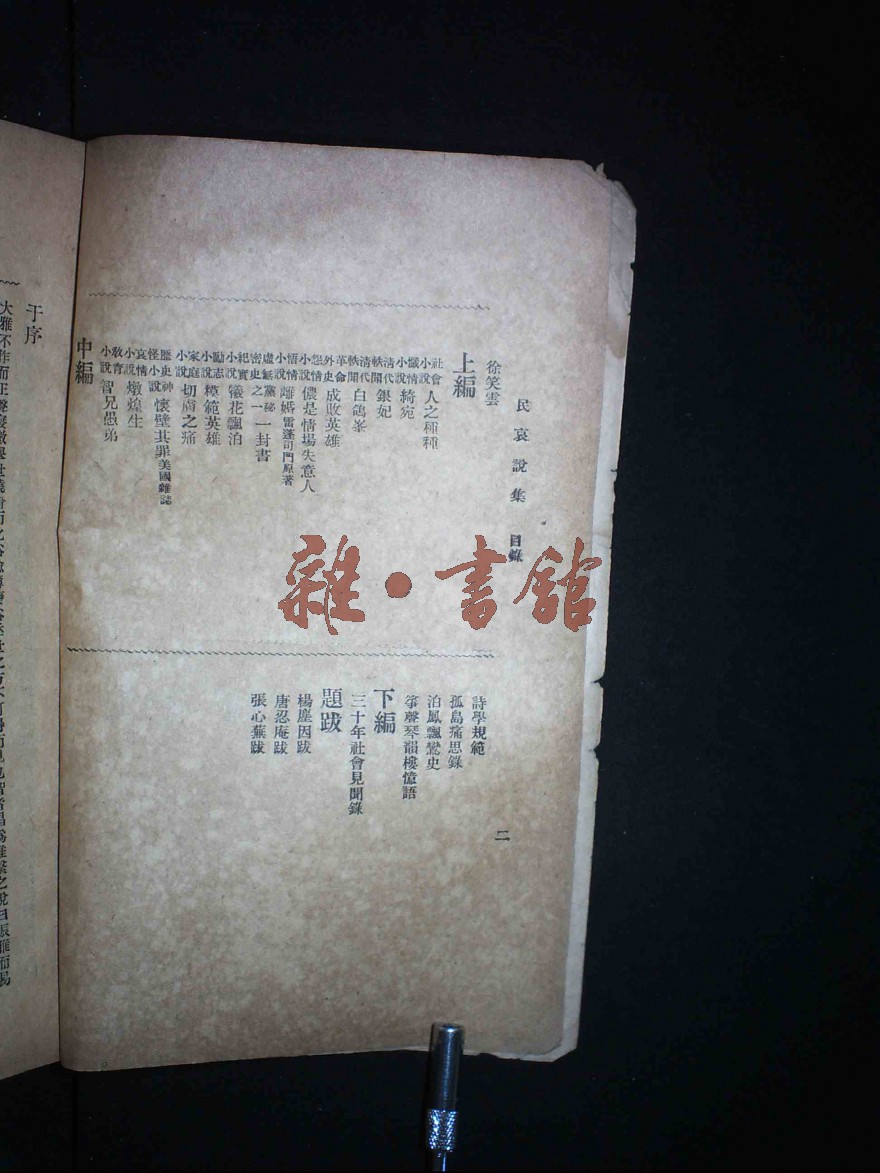 民哀說集　目錄
二
徐笑雲
上編
社會小說　人之種種
懺情小說　綺宛
清代軼聞　銀妃
清代軼聞　白鴿峯
革命外史　成敗英雄
怨情小說　儂是情場失意人
悟情小說　離婚　雷蓬司門原著
虛無黨秘密史之一　一封書
紀實小說　犧花飄泊
勵志小說　模範英雄
家庭小說　切膚之痛
歷史神怪小說　懷璧其罪　美國雜誌
哀情小說　燉煌生
教育小說　智兄愚弟
中編
詩學規範
孤島痛思錄
泊鳳飄鸞史
箏聲琴韻樓憶語
下編
三十年社會見聞錄
題跋
楊塵因跋
唐忍庵跋
張心蕪跋
于序
雜·書館